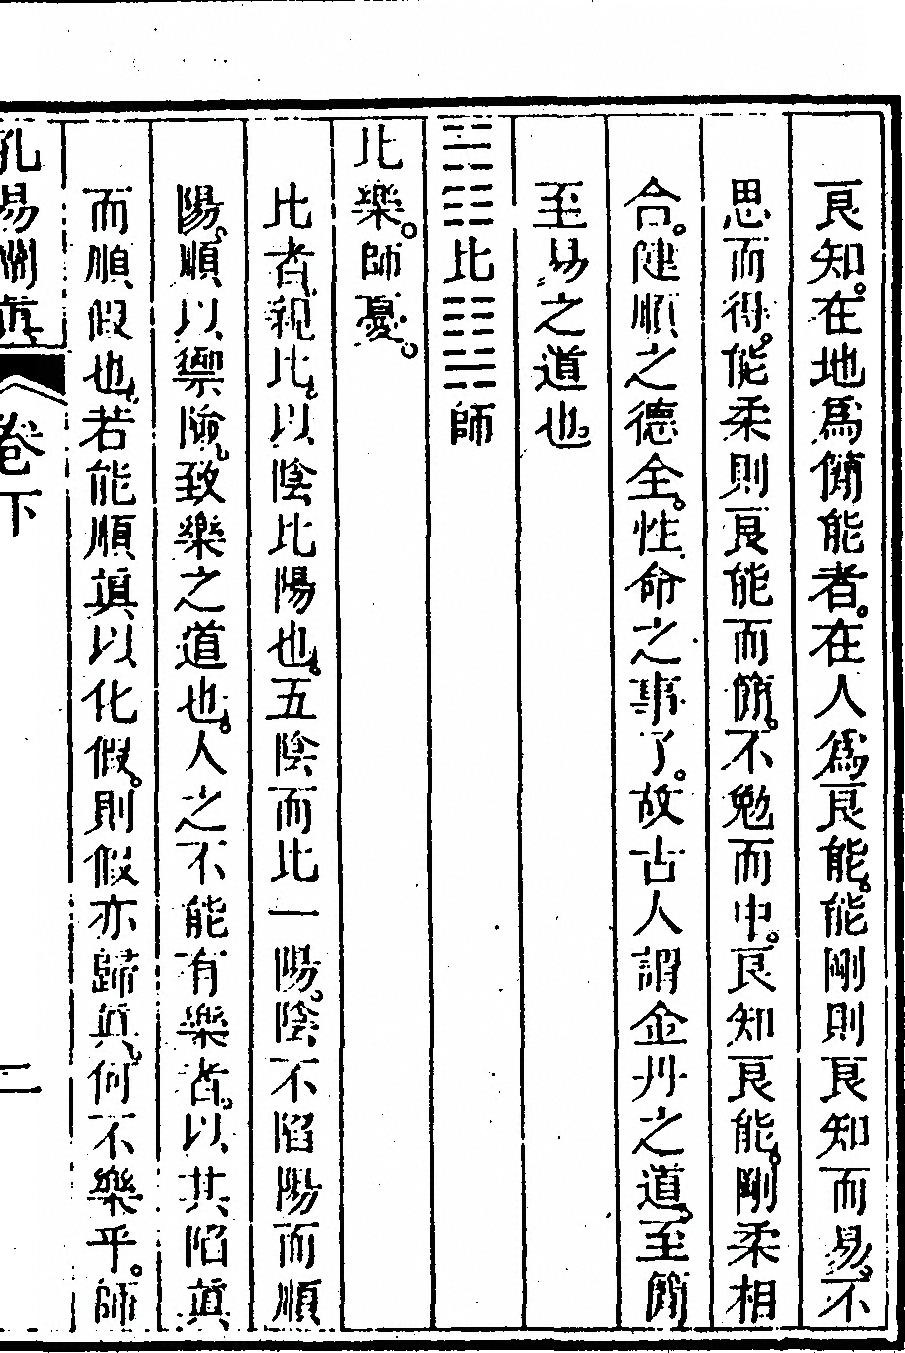 良知。在地爲簡能者。在人爲良能。能剛則良知而易。不
思而得。能柔則良能而簡。不勉而中。良知良能。剛柔相
合。健順之德全。性命之事了。故古人謂金丹之道。至簡
至易之道也。
䷇比䷆師
比樂。師憂。
比者。親比。以陰比陽也。五陰而比一陽。陰不陷陽而順
陽。順以禦險。致樂之道也。人之不能有樂者。以其陷眞
而順假也。若能順眞以化假。則假亦歸眞。何不樂乎。師
孔易闡眞 卷下 二